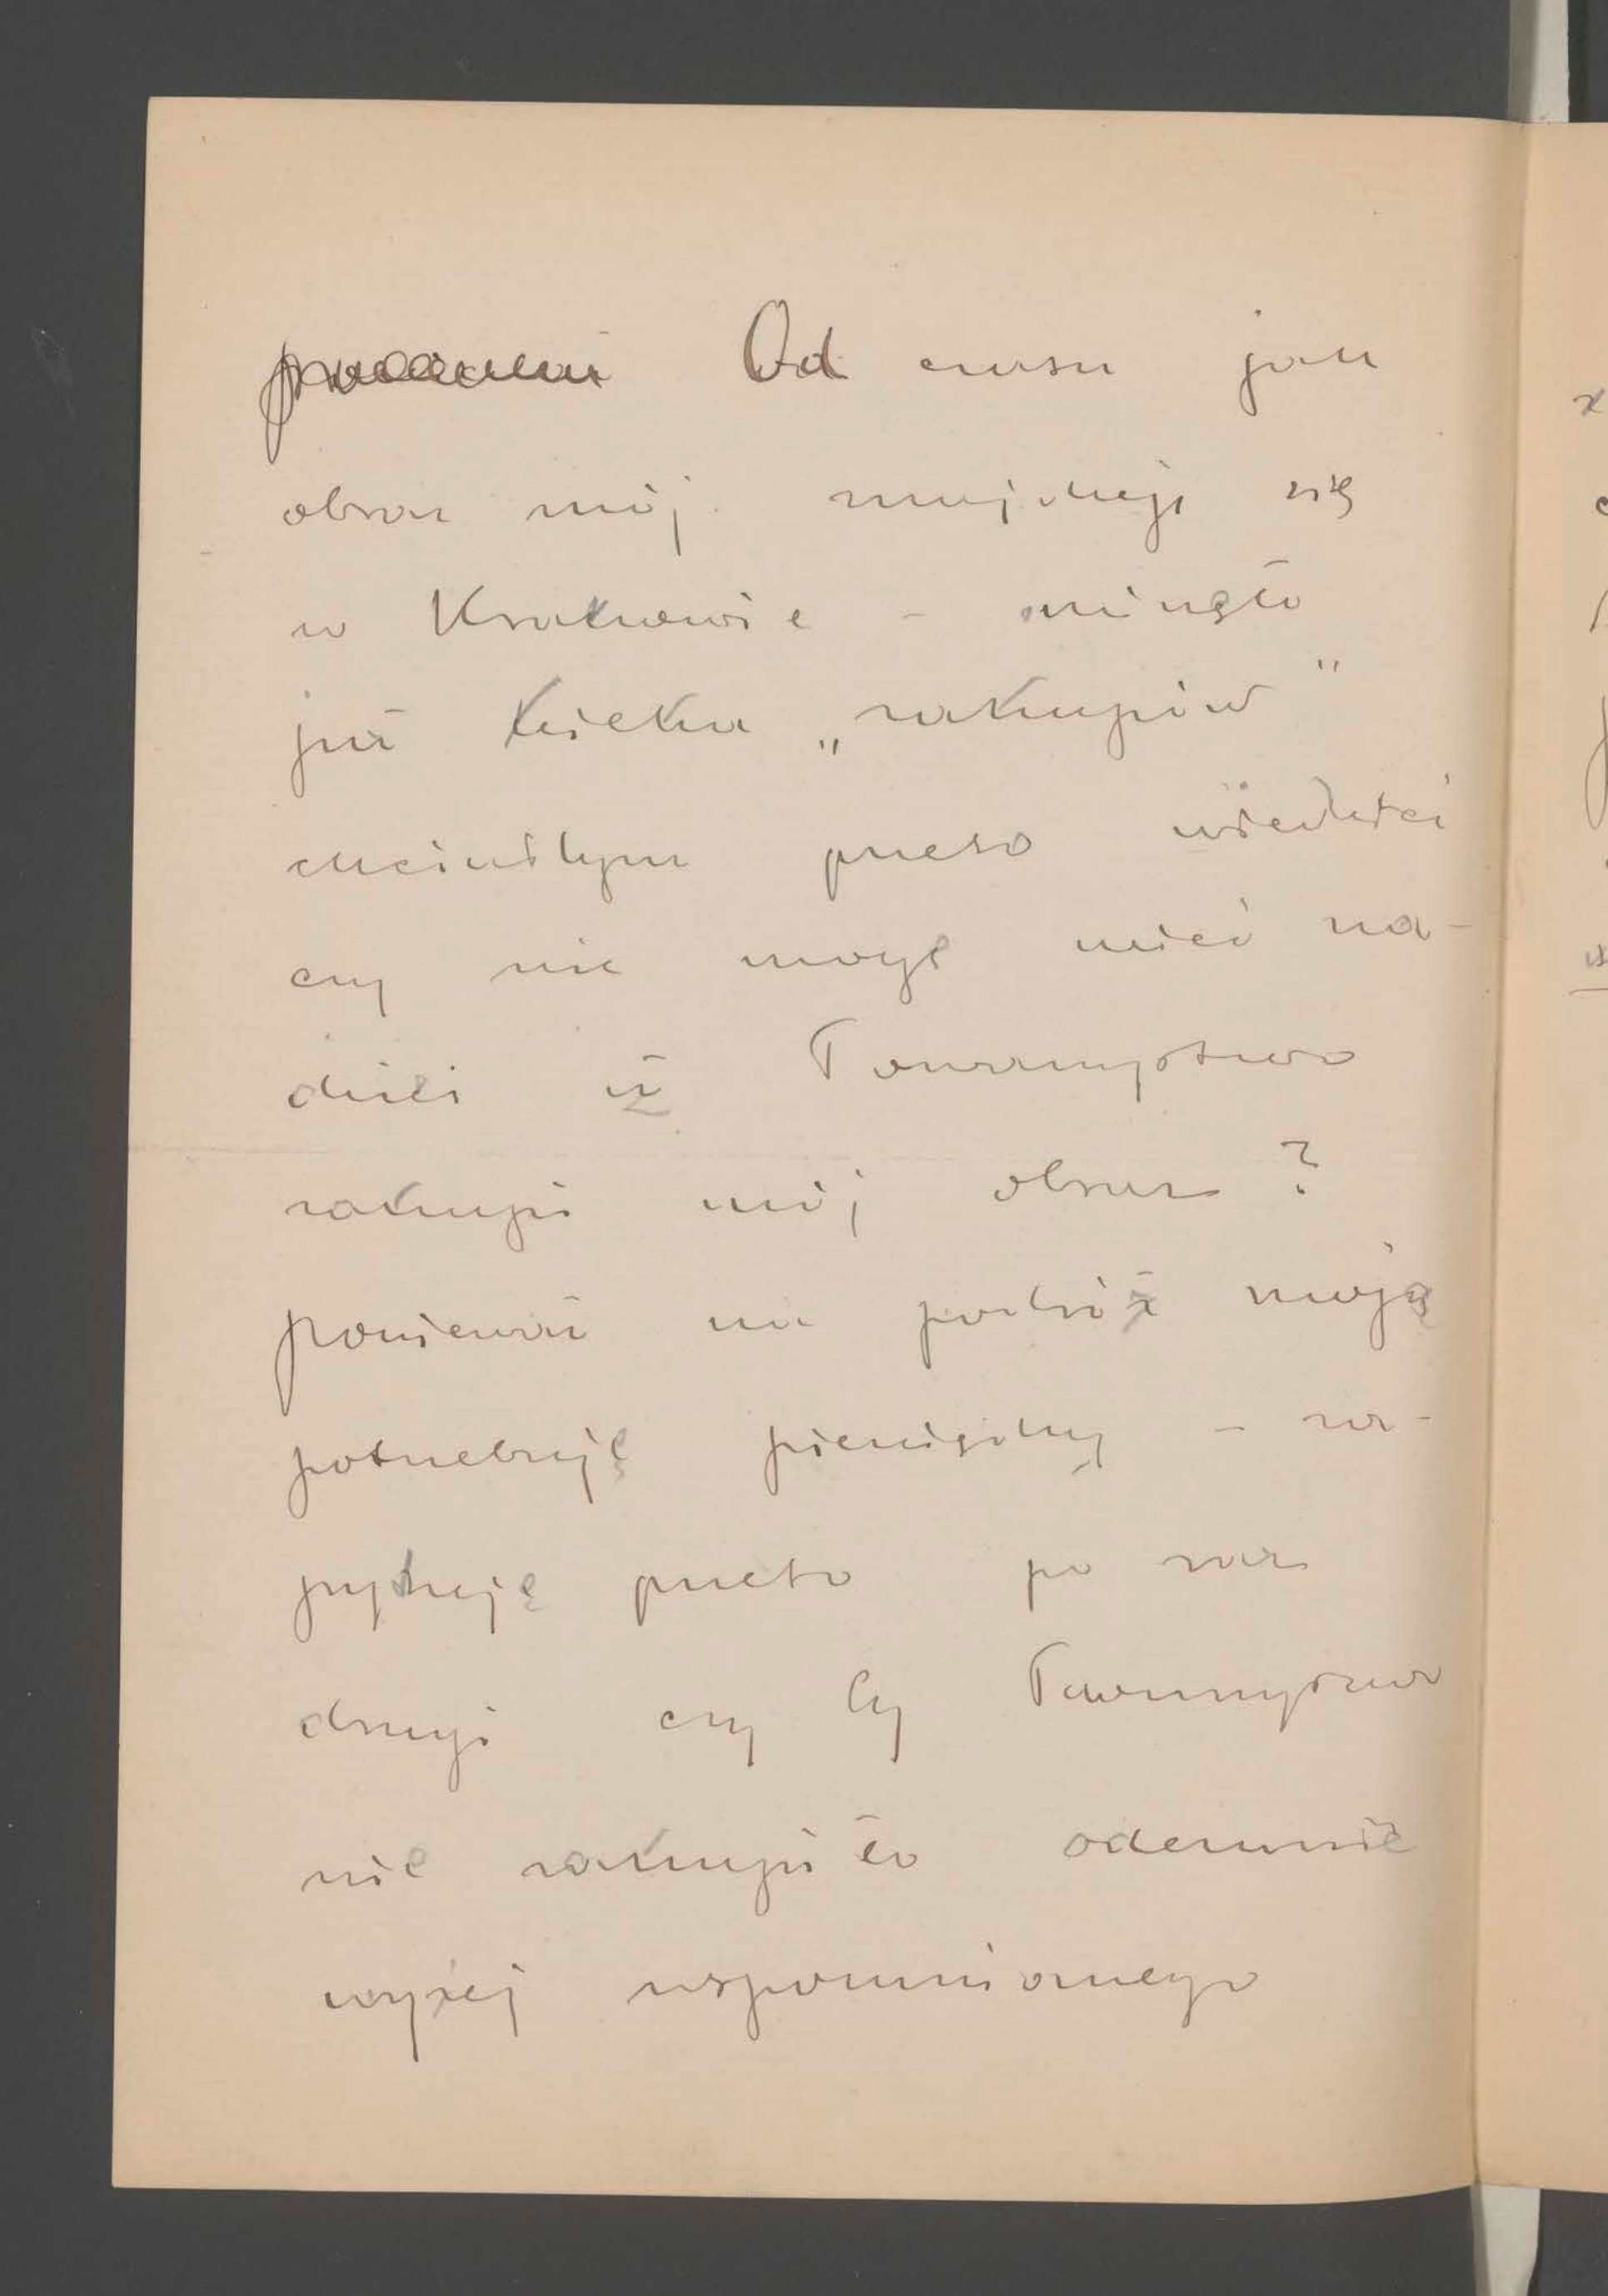 Od czasu jak
obraz mój znajduje się
w Krakowie - minęło
już kielka „zakupów"
chciałbym przeto wiedzieć
czy nie mogę mieć na-
dziei iż Towarzystwo
zakupi mój obraz?
ponieważ na podróż moją
potrzebuję pieniędzy - za-
pytuję przeto po raz
drugi czy by Towarzystwo
nie zakupiło odemnie
wyżej wspomnianego